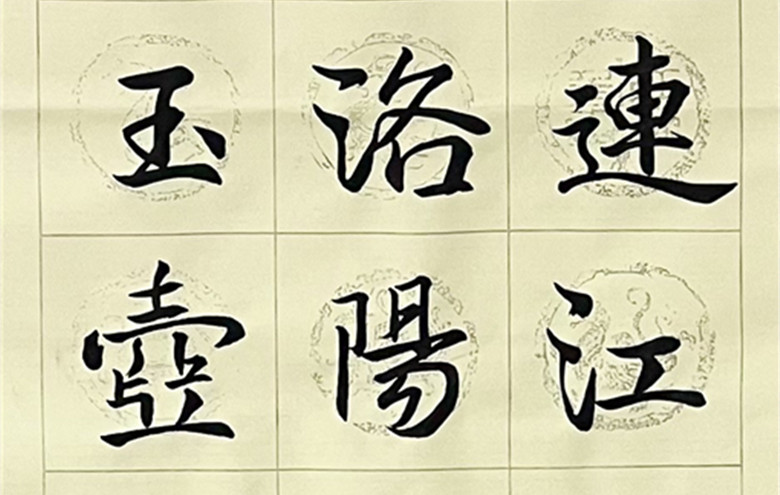 連江
洛陽
玉壺